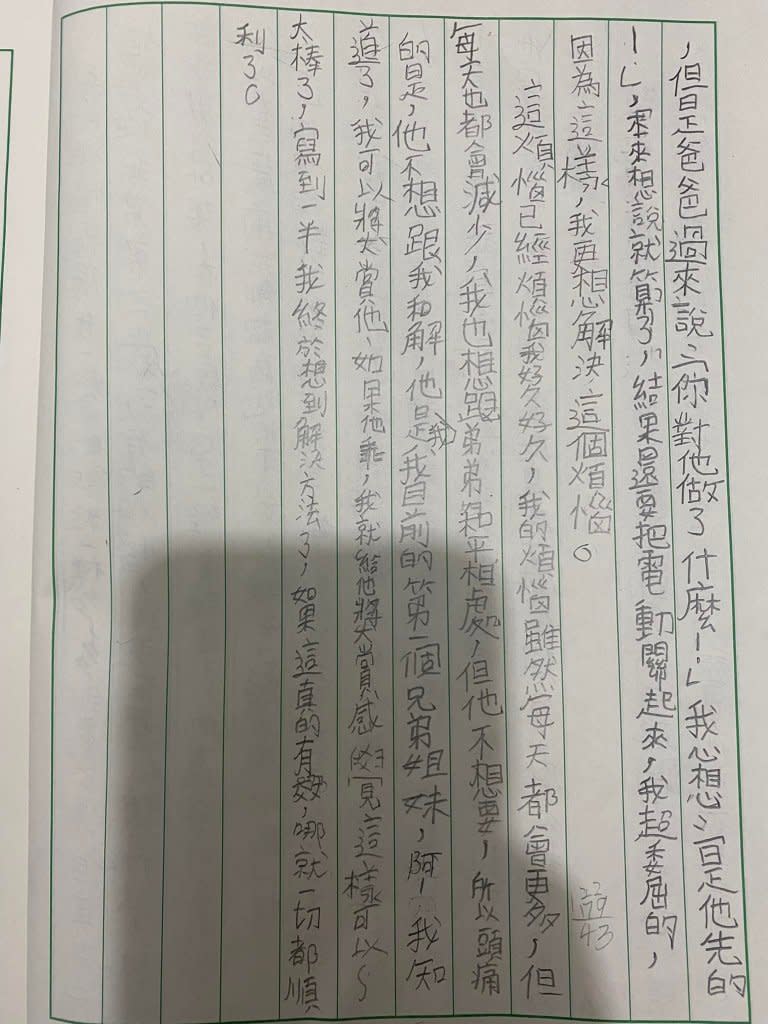 ，但是爸爸過來說：「你對他做了什麼！」我心想：「是他先的
！」，本來想說就算了，結果還要把電動關起來，我超委屈的，
因為這樣，我更想解決這個煩惱。
這煩惱已經煩惱我好久好久，我的煩惱雖然每天都會更多，但
每天也都會減少，我也想跟弟弟和平相處，但他不想要，所以頭痛
的是，他不想跟我和解，他是我目前的第一個兄弟姐妹，阿！我知
道了，我可以獎賞他，如果他乖，我就給他獎賞感「這樣可以～
大棒了，寫到一半我終於想到解決方法了，如果這真的有效，哪就一切都順
利了。